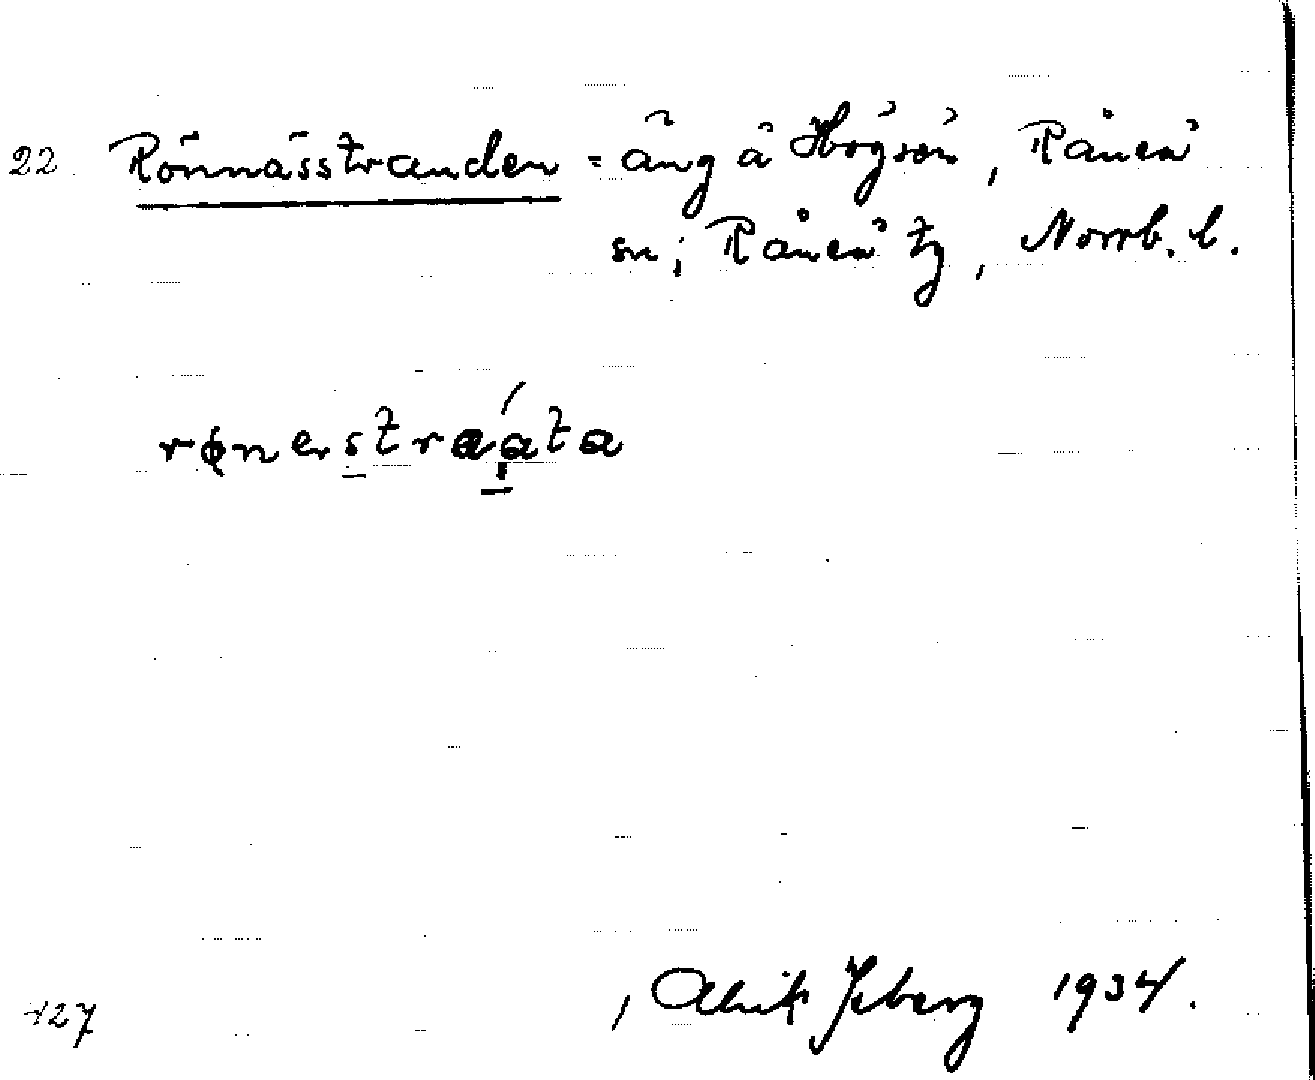 22 Rönnässtranden = äng å Högsön, Råneå
sn; Råneå tg, Norrb. l.
rønerstraáta
127
1934.